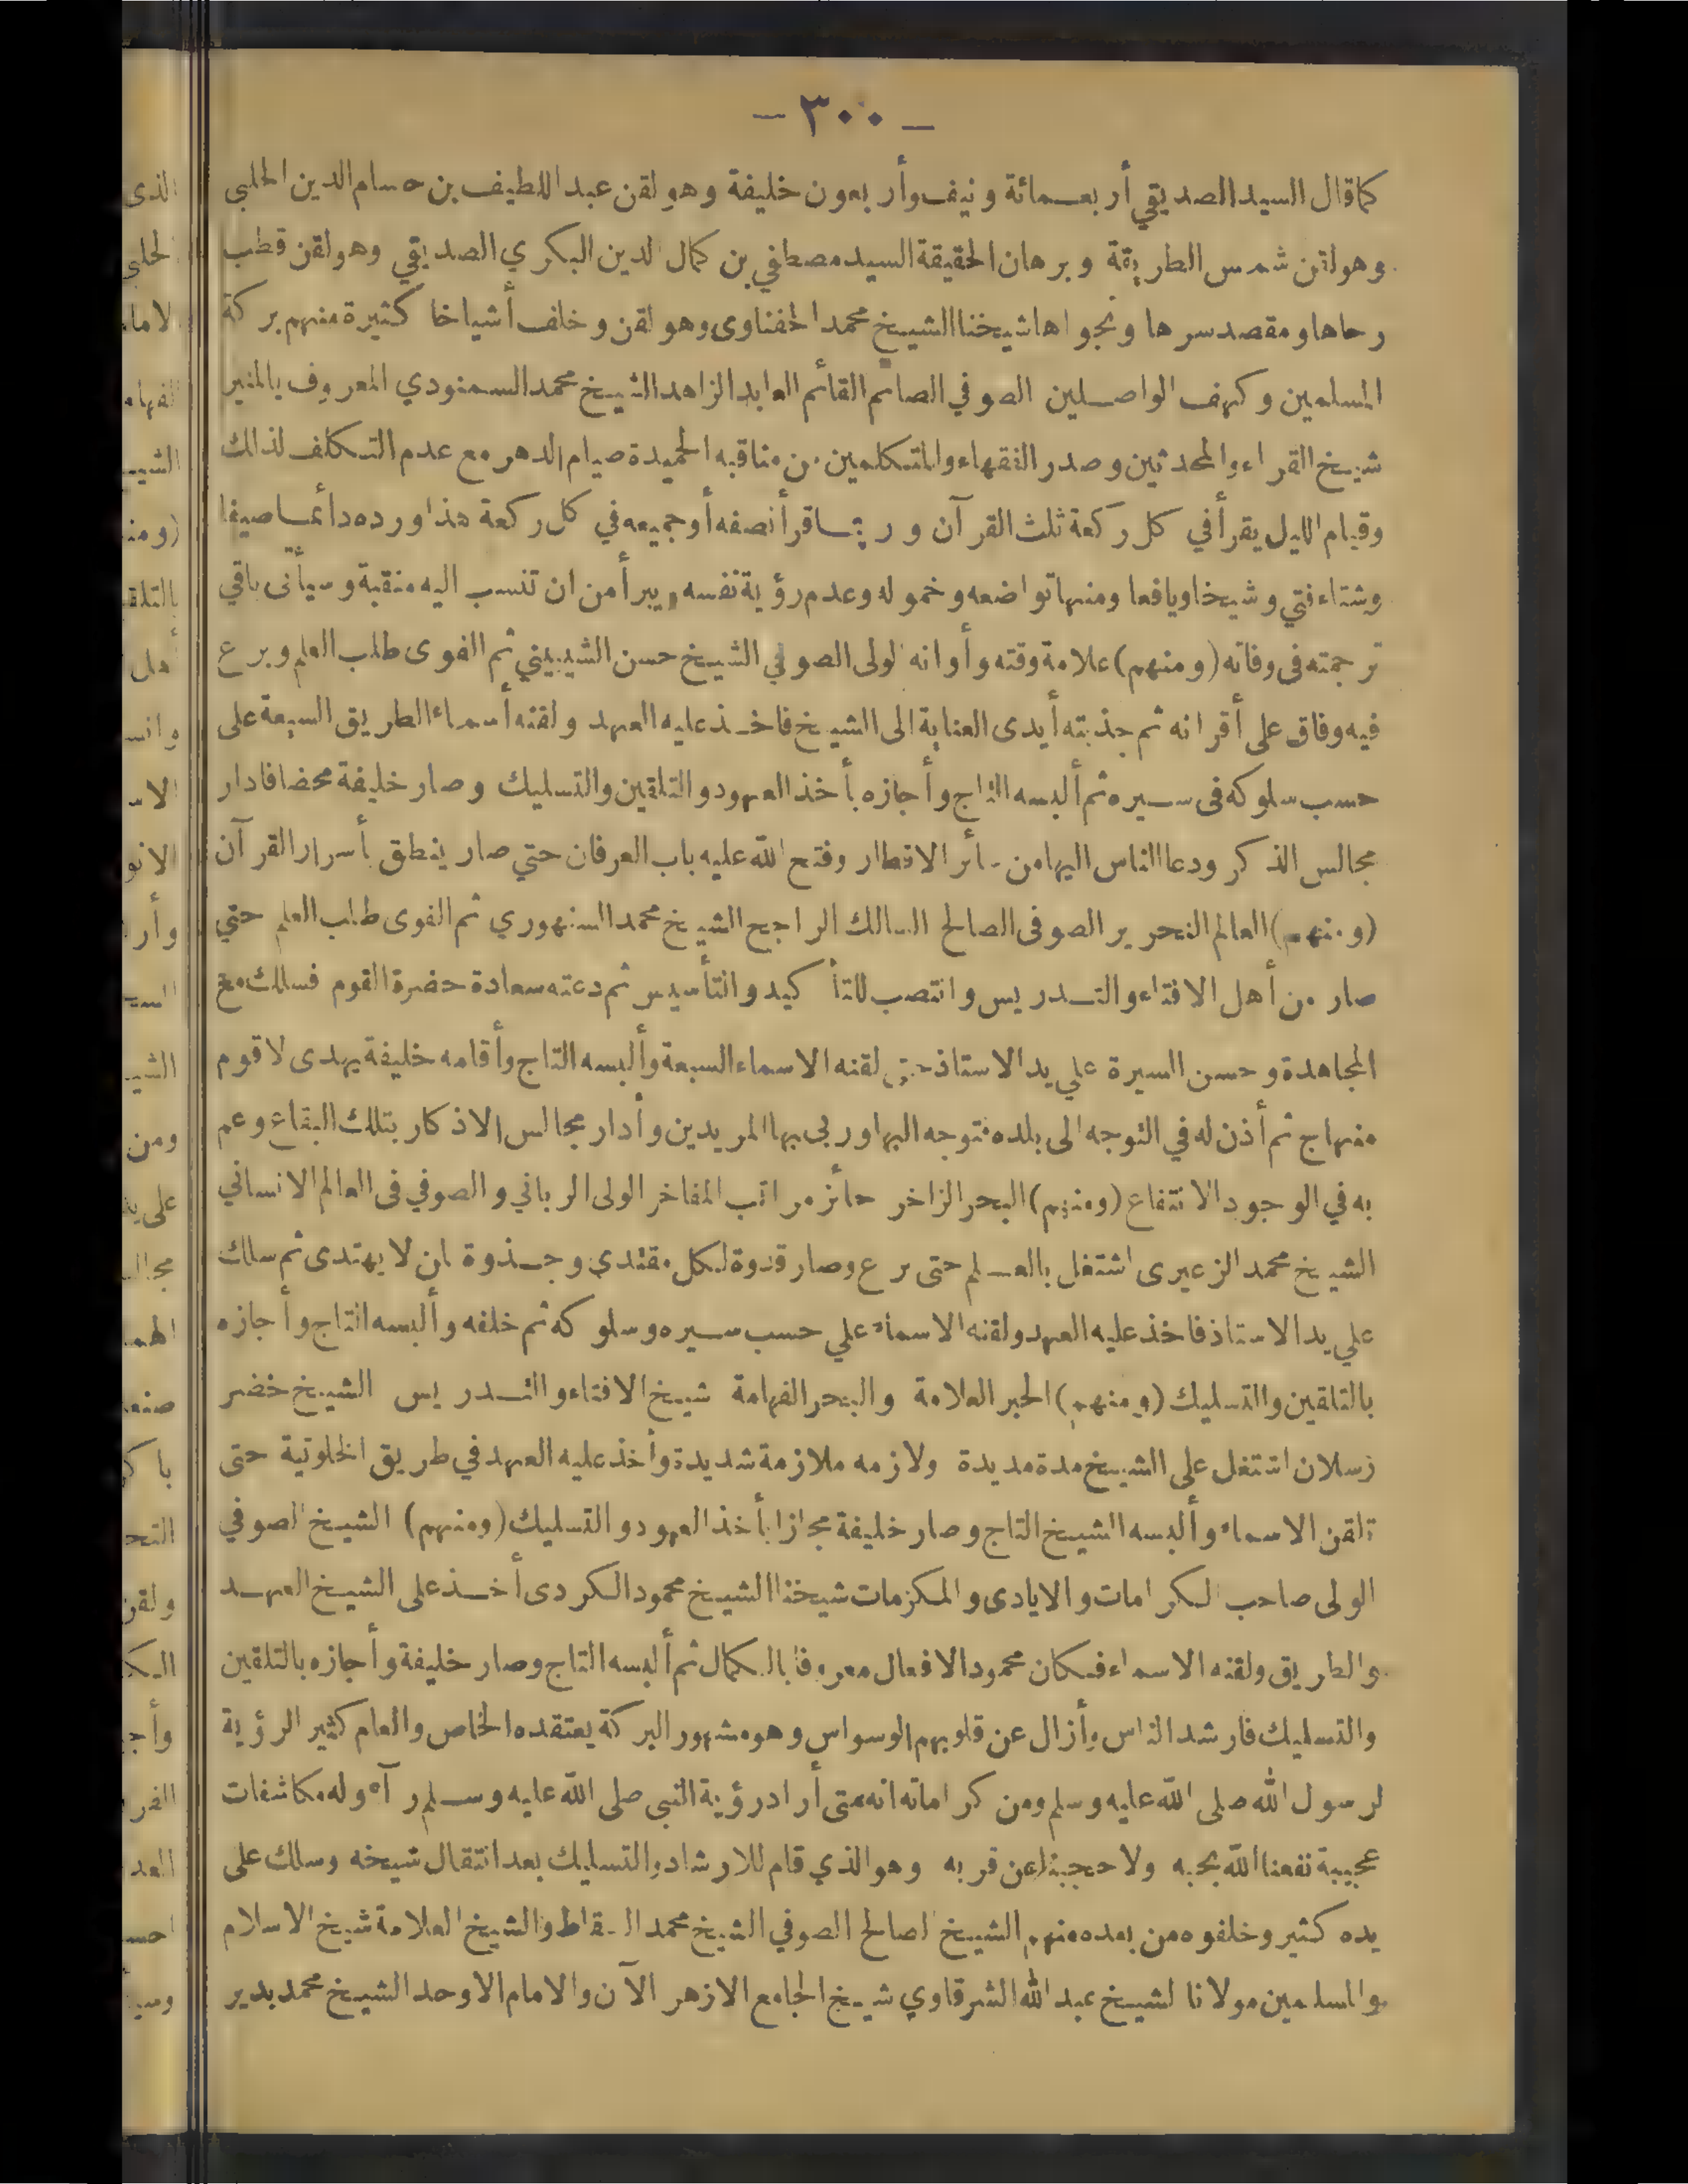 – ٣٠٠ –
كما قال السيد الصديقي أربعمائة ونيف وأربعون خليفة وهو لقن عبد اللطيف بن حسام الدين الحلبي
وهو لقن شمس الطريقة وبرهان الحقيقة السيد مصطفي بن كمال الدين البكري الصديقي وهو لقن قطب
رحاها ومقصد سرها ونجواها شيخنا الشيخ محمد الحفناوى وهو لقن وخلف أشياخا كثيرة منهم بركة
المسلمين وكهف الواصلين الصوفي الصائم القائم العابد الزاهد الشيخ محمد السمنودي المعروف بالمنير
شيخ القراء والمحدثين وصدر الفقهاء والمتكلمين من مناقبه الحميدة صيام الدهر مع عدم التكلف لذلك
وقيام الليل يقرأ في كل ركعة ثلث القرآن وربما قرأ نصفه أو جميعه في كل ركعة هذا ورده دائما صيفا
وشتاء فتي وشيخا ويافعا ومنها تواضعه وخموله وعدم رؤية نفسه ويبرأ من ان تنسب اليه منقبة وسيأتى باقي
ترجمته فى وفاته (ومنهم) علامة وقته وأوانه الولى الصوفي الشيخ حسن الشيبيني ثم الفوى طلب العلم وبرع
فيه وفاق على أقرانه ثم جذبته أيدى العناية الى الشيخ فاخذ عليه العهد ولقنه أسماء الطريق السبعة على
حسب سلوكه فى سيره ثم ألبسه التاج وأجازه بأخذ العهود والتلقين والتسليك وصار خليفة محضا فادار
مجالس الذكر ودعا الناس اليها من سائر الاقطار وفتح الله عليه باب العرفان حتي صار ينطق بأسرار القرآن
(ومنهم) العالم النحرير الصوفى الصالح السالك الراجح الشيخ محمد السنهوري ثم الفوى طلب العلم حتي
صار من أهل الافتاء والتدريس وانتصب للتأكيد والتأسيس ثم دعته سعادة حضرة القوم فسلك مع
المجاهدة وحسن السيرة علي يد الاستاذ حتى لقنه الاسماء السبعة وألبسه التاج وأقامه خليفة يهدى لاقوم
منهاج ثم أذن له في التوجه الى بلده فتوجه اليها وربى بها المريدين وأدار مجالس الاذكار بتلك البقاع وعم
به في الوجود الانتفاع (ومنهم) البحر الزاخر حائز مراتب المفاخر الولى الرباني والصوفي فى العالم الانساني
الشيخ محمد الزعيرى اشتغل بالعلم حتى برع وصار قدوة لكل مقتدي وجذوة لمن لا يهتدى ثم سلك
علي يد الاستاذ فاخذ عليه العهد ولقنه الاسماء علي حسب سيره وسلوكه ثم خلفه وألبسه التاج وأجازه
بالتلقين والتسليك (ومنهم) الحبر العلامة والبحر الفهامة شيخ الافتاء والتدريس الشيخ خضر
رسلان اشتغل على الشيخ مدة مديدة ولازمه ملازمة شديدة وأخذ عليه العهد في طريق الخلوتية حتى
تلقن الاسماء وألبسه الشيخ التاج وصار خليفة مجازا بأخذ العهود والتسليك (ومنهم) الشيخ الصوفي
الولى صاحب الكرامات والايادى والمكرمات شيخنا الشيخ محمود الكردى أخذ على الشيخ العهد
والطريق ولقنه الاسماء فكان محمود الافعال معروفا بالكمال ثم ألبسه التاج وصار خليفة وأجازه بالتلقين
والتسليك فارشد الناس وأزال عن قلوبهم الوسواس وهو مشهور البركة يعتقده الخاص والعام كثير الرؤية
لرسول الله صلى الله عليه وسلم ومن كراماته انه متى أراد رؤية النبى صلى الله عليه وسلم رآه وله مكاشفات
عجيبة نفعنا الله بحبه ولا حجبنا عن قربه وهو الذي قام للارشاد والتسليك بعد انتقال شيخه وسلك على
يده كثير وخلفوه من بعده منهم الشيخ الصالح الصوفي الشيخ محمد السقاط والشيخ العلامة شيخ الاسلام
والمسلمين مولانا الشيخ عبد الله الشرقاوي شيخ الجامع الازهر الآن والامام الاوحد الشيخ محمد بدير